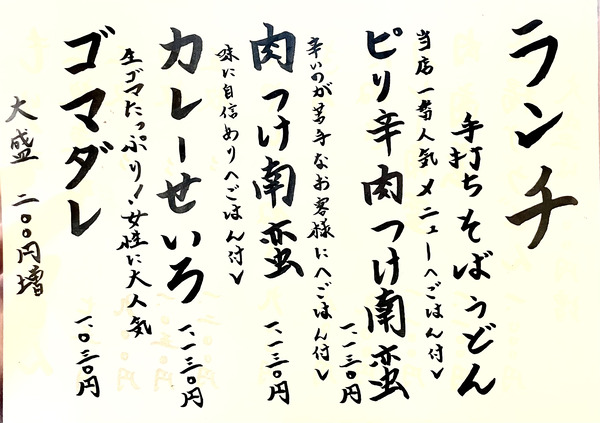 ランチ
手打ちそばうどん
当店一番人気メニュー（ごはん付）
ピリ辛肉つけ南蛮
一、一三〇円
辛いのが苦手なお客様に（ごはん付）
肉つけ南蛮
一、一三〇円
味に自信あり（ごはん付）
カレーせいろ
一、一三〇円
生ゴマたっぷり！女性に大人気
ゴマダレ
一、〇三〇円
大盛 二〇〇円増